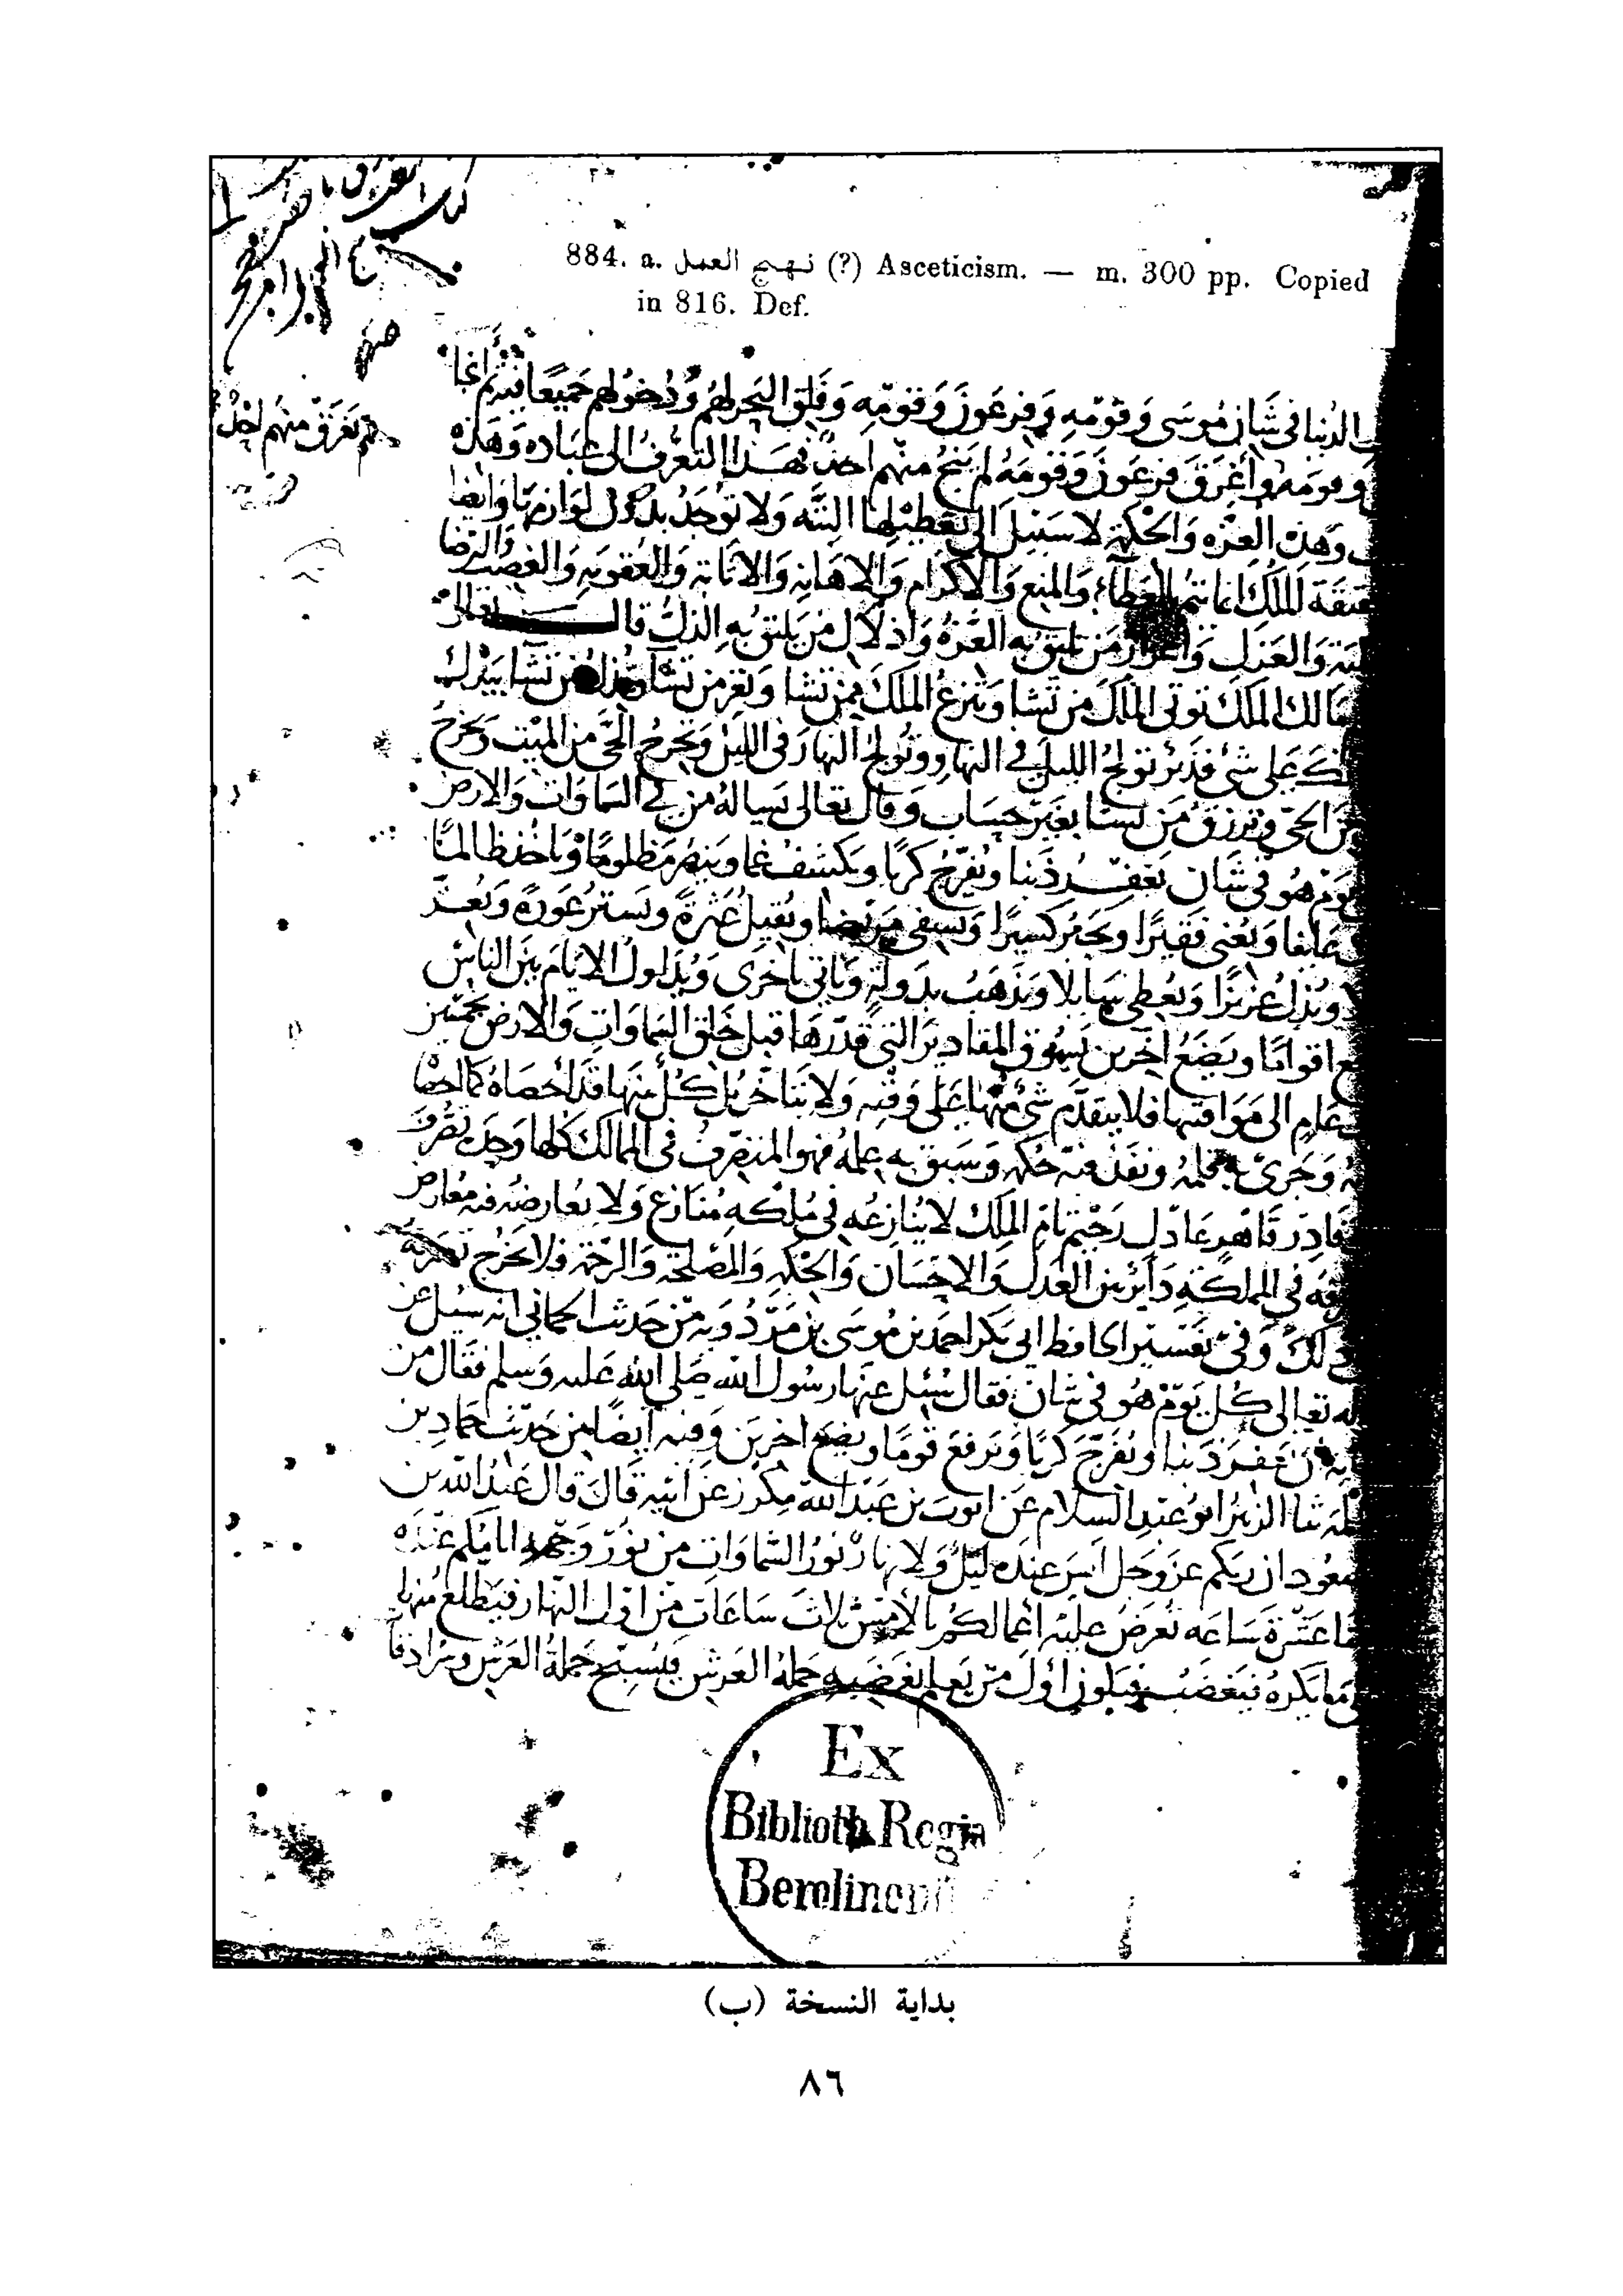 884. a. نهج العمل (?) Asceticism. — m. 300 pp. Copied
in 816. Def.
الدنيا في شان موسى وقومه وفرعون وقومه وفلق البحر لهم ودخولهم جميعا فيه ثم انجا
وقومه واغرق فرعون وقومه لم ينج منهم احد فهذا التعرف الى عباده وهذه
لم يغرق منهم احد
وهذه العزه والحكمة لا سبيل الى تعطيلها البتة ولا توجد بدون لوازمها وايضا
للملك انما تتم بالعطاء والمنع والاكرام والاهانه والاثابة والعقوبه والغضب والرضا
والعزل واعزاز من يليق به العزه واذلال من يليق به الذل قال تعالى
مالك الملك توتي الملك من تشا وتنزع الملك ممن تشا وتعز من تشا وتذل من تشا بيدك
على شئ قدير تولج الليل في النهار وتولج النهار في الليل وتخرج الحي من الميت وتخرج
من الحي وترزق من تشا بغير حساب وقال تعالى يساله من في السماوات والارض
يوم هو في شان يغفر ذنبا ويفرج كربا ويكشف غما وينصر مظلوما وياخذ ظالما
ويغني فقيرا ويجبر كسيرا ويشفي مريضا ويقيل عثرة ويستر عورة ويعز
ويذل عزيزا ويعطي سايلا ويذهب بدولة وياتي باخرى ويداول الايام بين الناس
اقواما ويضع اخرين يسوق المقادير التي قدرها قبل خلق السماوات والارض بخمسين
عام الى مواقيتها فلا يتقدم شئ منها على وقته ولا يتاخر بل كل منها قد احصاه كما احصا
وجرى به قلمه ونفذ فيه حكمه وسبق به علمه فهو المتصرف في الممالك كلها وحده تصرف
قادر قاهر عادل رحيم تام الملك لا ينازعه في ملكه منازع ولا يعارضه فيه معارض
في المملكة دائر بين العدل والاحسان والحكمه والمصلحة والرحمة فلا يخرج تصرفه
ذلك وفي تفسير الحافظ ابي بكر احمد بن موسى بن مردويه من حديث الحماني انه سئل عن
تعالى كل يوم هو في شان فقال سئل عنها رسول الله صلى الله عليه وسلم فقال من
ان يغفر ذنبا ويفرج كربا ويرفع قوما ويضع اخرين وفيه ايضا من حديث حماد بن
ثنا الزبير ابو عبد السلام عن ايوب بن عبد الله مكرز عن ابيه قال قال عبد الله بن
ان ربكم عز وجل ليس عنده ليل ولا نهار نور السماوات من نور وجهه ايامكم عنده
عشرة ساعه تعرض عليه اعمالكم بالامس ثلاث ساعات من اول النهار فيطلع منها
ما يكره فيغضب فيكون اول من يعلم بغضبه حملة العرش فيسبح حملة العرش وسرادقا
Ex
Biblioth. Regia
Berolinen
بداية النسخة (ب)
٨٦